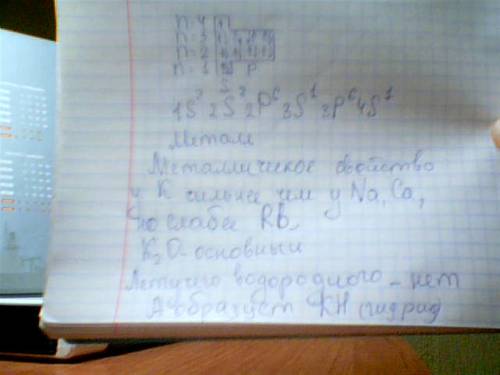 n=4
n=3
n=2
n=1 S P
S
1S² 2S² 2P⁶ 3S¹ 3P⁶ 4S¹
Метал
Металлическое свойство
у K сильнее чем у Na, Ca,
но слабее Rb,
K₂O-основный
Летучего водородного - нет
А образует KH (гидрид